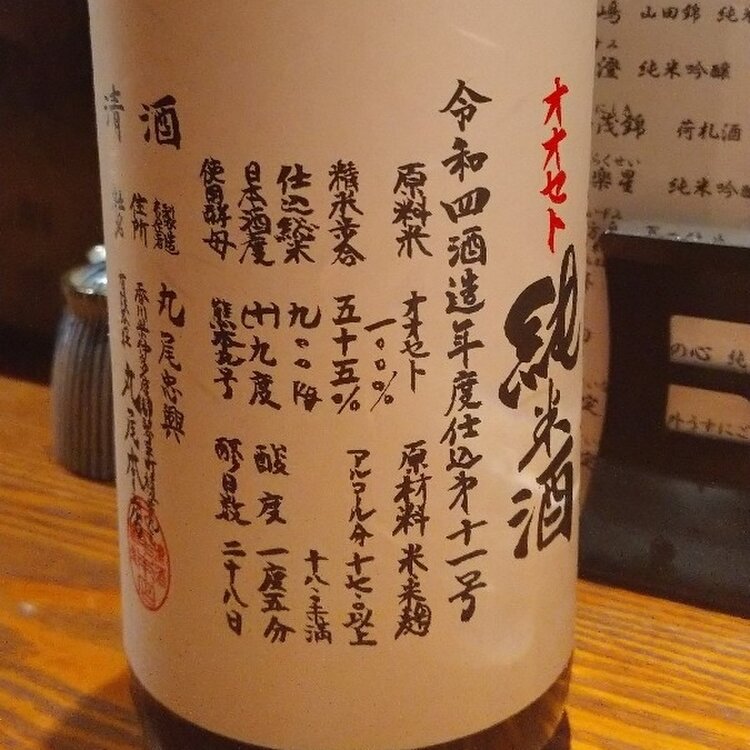 オオセト
純米酒
令和四酒造年度仕込第十一号
原料米 オオセト一〇〇%
原材料 米米麹
精米歩合 五十五%
アルコール分 十七.〇以上
十八.〇未満
仕込総米 九〇〇kg
日本酒度 (十)九度
酸度 一度五分
使用酵母 熊本九号
醪日数 二十八日
清酒
製造
責任者 丸尾忠興
住所
山田錦
純米吟醸
浅錦 荷札酒
楽星 純米吟
の心 純
外うすにご